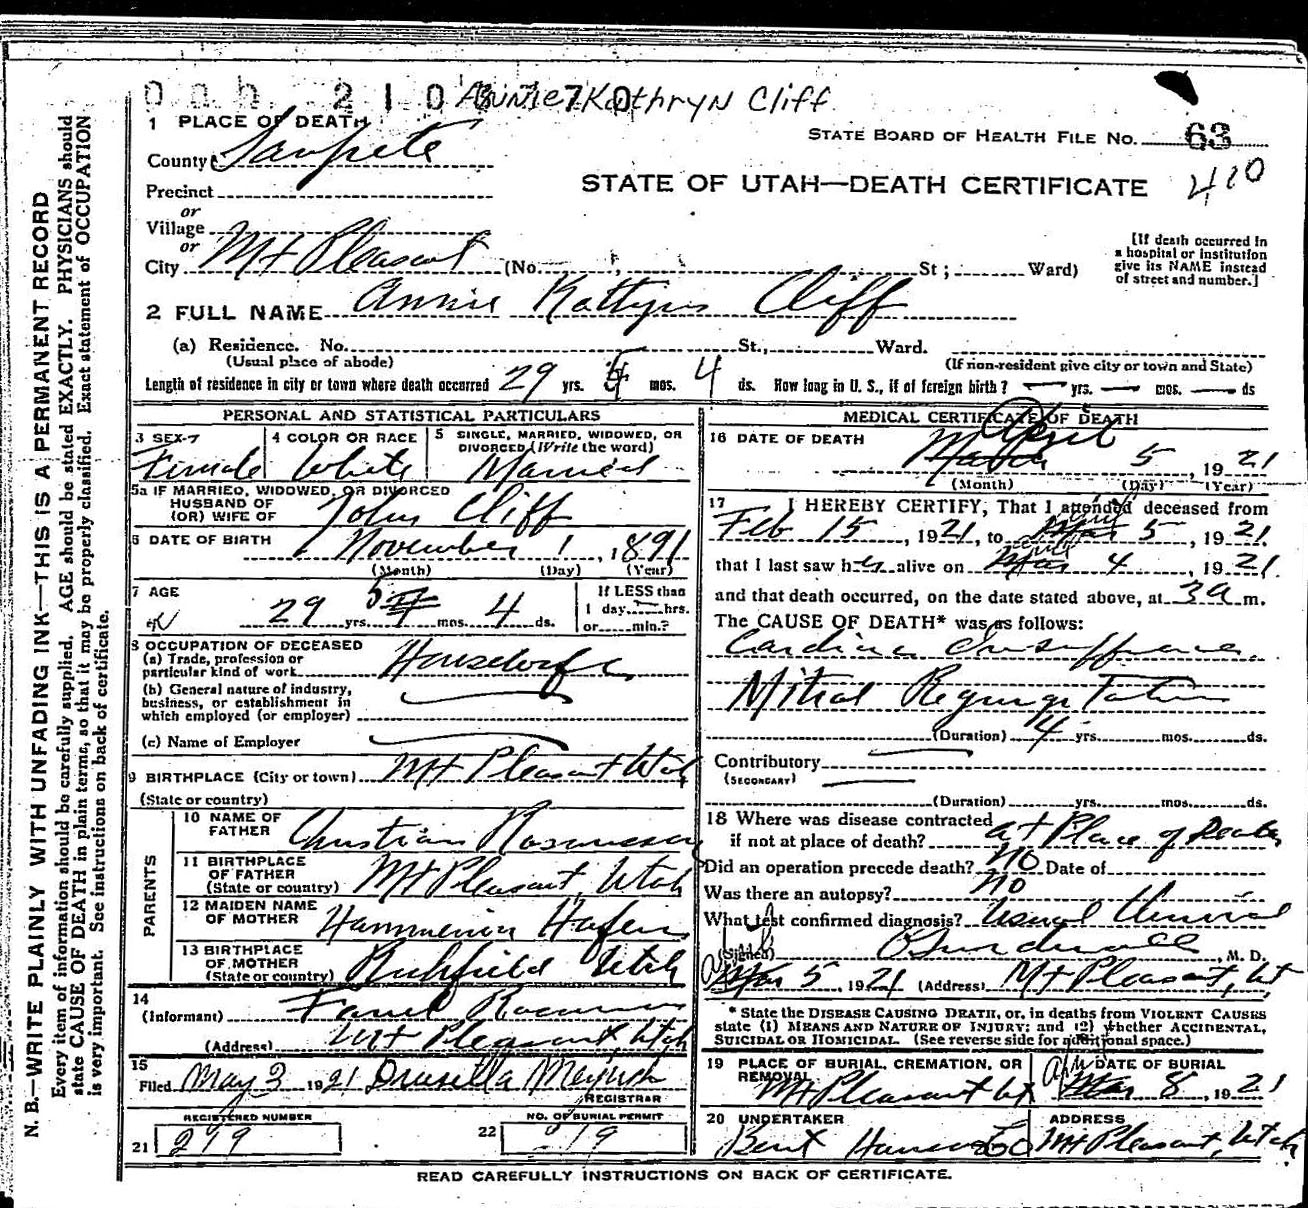 Annie Kathryn Cliff
1 PLACE OF DEATH
STATE BOARD OF HEALTH FILE NO. 63
County Sanpete
STATE OF UTAH—DEATH CERTIFICATE 410
Precinct
or
Village
or
City Mt Pleasant (No. St; Ward)
[If death occurred in
a hospital or institution
give its NAME instead
of street and number.]
2 FULL NAME Annie Kathryn Cliff
(a) Residence. No. St., Ward.
(Usual place of abode) (If non-resident give city or town and State)
Length of residence in city or town where death occurred 29 yrs. 5 mos. 4 ds. How long in U. S., if of foreign birth? — yrs. — mos. — ds
PERSONAL AND STATISTICAL PARTICULARS
3 SEX 4 COLOR OR RACE 5 SINGLE, MARRIED, WIDOWED, OR
DIVORCED (Write the word)
Female White Married
5a IF MARRIED, WIDOWED, OR DIVORCED
HUSBAND OF
(OR) WIFE OF John Cliff
6 DATE OF BIRTH November 1, 1891
(Month) (Day) (Year)
7 AGE 29 yrs. 5 mos. 4 ds.
If LESS than
1 day hrs.
or min.?
8 OCCUPATION OF DECEASED
(a) Trade, profession or
particular kind of work
(b) General nature of industry,
business, or establishment in
which employed (or employer)
(c) Name of Employer
9 BIRTHPLACE (City or town) Mt Pleasant Utah
(State or country)
PARENTS
10 NAME OF
FATHER Christian Rasmussen
11 BIRTHPLACE
OF FATHER
(State or country) Mt Pleasant, Utah
12 MAIDEN NAME
OF MOTHER Hafen
13 BIRTHPLACE
OF MOTHER
(State or country) Richfield Utah
14
(Informant)
(Address) Mt Pleasant Utah
15
Filed May 3 1921 Drusilla
REGISTRAR
REGISTERED NUMBER NO. OF BURIAL PERMIT
21 299 22 219
MEDICAL CERTIFICATE OF DEATH
16 DATE OF DEATH April 5, 1921
(Month) (Day) (Year)
17 I HEREBY CERTIFY, That I attended deceased from
Feb 15, 1921, to April 5, 1921.
that I last saw her alive on April 4, 1921.
and that death occurred, on the date stated above, at 3 a m.
The CAUSE OF DEATH* was as follows:
Cardiac Insufficiency
Mitral Regurgitation
(Duration) 4 yrs. mos. ds.
Contributory
(SECONDARY)
(Duration) yrs. mos. ds.
18 Where was disease contracted
if not at place of death? at Place of Death
Did an operation precede death? No Date of
Was there an autopsy? no
What test confirmed diagnosis? Usual Clinical
(Signed) , M. D.
Apr 5, 1921 (Address) Mt Pleasant, Ut
* State the DISEASE CAUSING DEATH, or, in deaths from VIOLENT CAUSES
state (1) MEANS AND NATURE OF INJURY; and (2) whether ACCIDENTAL,
SUICIDAL OR HOMICIDAL. (See reverse side for additional space.)
19 PLACE OF BURIAL, CREMATION, OR
REMOVAL Mt Pleasant Ut
DATE OF BURIAL
Apr 8, 1921
20 UNDERTAKER ADDRESS
Bent Hansen Co Mt Pleasant, Utah
READ CAREFULLY INSTRUCTIONS ON BACK OF CERTIFICATE.
N. B.—WRITE PLAINLY WITH UNFADING INK—THIS IS A PERMANENT RECORD
Every item of information should be carefully supplied. AGE should be stated EXACTLY. PHYSICIANS should
state CAUSE OF DEATH in plain terms, so that it may be properly classified. Exact statement of OCCUPATION
is very important. See instructions on back of certificate.